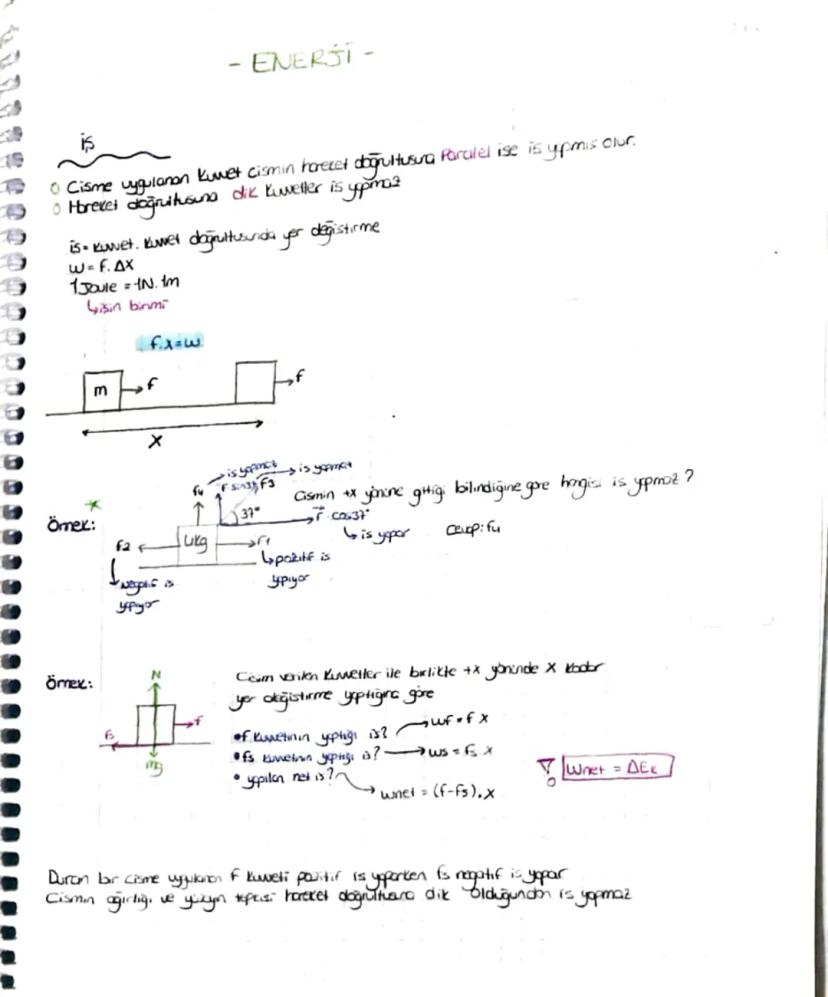 - ENERJİ -
iş
Cisme uygulanan kuvvet cismin hareket doğrultusuna Paralel ise iş yapmış olur.
Hareket doğrultusuna dik kuvvetler iş yapmaz
iş = kuvvet. kuvvet doğrultusunda yer değiştirme
W = f. ΔX
1 Joule = 1N. 1m
↳ işin birimi
f.x=W
m → f → f
X
iş yapmaz → iş yapmaz
f4 F sin37 F3 Cismin +x yönüne gittiği bilindiğine göre hangisi iş yapmaz?
Örnek: 37° F cos37°
↳ iş yapar Cevap: f4
f2 4kg F1
↳ pozitif iş yapıyor
negatif iş yapıyor
Örnek: N Cisim verilen kuvvetler ile birlikte +x yönünde x kadar
yer değiştirme yaptığına göre
fs f
mg
• f kuvvetinin yaptığı iş? → Wf = f x
• fs kuvvetinin yaptığı iş? → Ws = fs x
• yapılan net iş? → Wnet = (f-fs).x
! Wnet = ΔEk
Duran bir cisme uygulanan f kuvveti pozitif iş yaparken fs negatif iş yapar
Cismin ağırlığı ve yüzeyin tepkisi hareket doğrultusuna dik olduğundan iş yapmaz